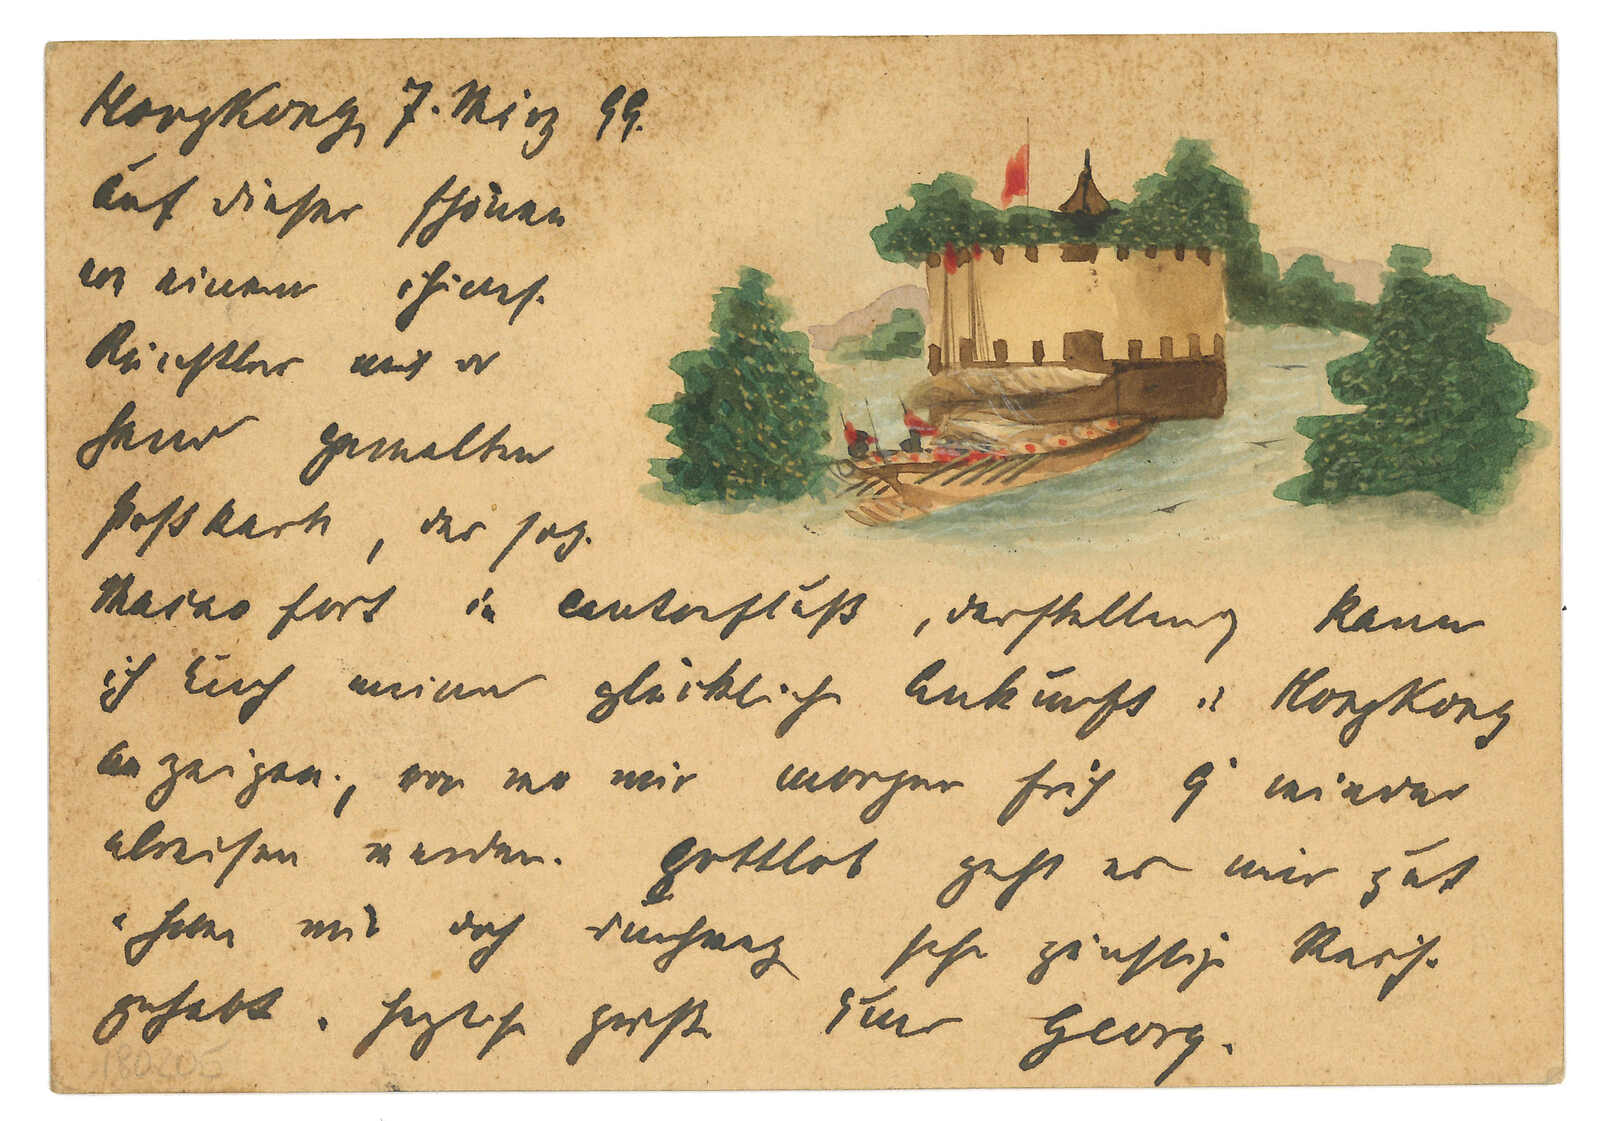 Hongkong, 7. März 99.
Auf dieser schönen
von einem chines.
Künstler mit der
Hand gemalten
Postkarte, das sog.
Macao fort in Cantonfluß, darstellend kann
ich Euch meine glückliche Ankunft in Hongkong
anzeigen, von wo wir morgen früh 9 wieder
abreisen werden. Gottlob geht es mir gut
haben wir doch durchweg sehr günstige Reise
gehabt. herzliche Grüße Euer Georg.
180205